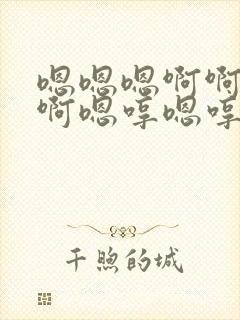 嗯嗯嗯啊啊
啊嗯哼嗯哼
千煦的城